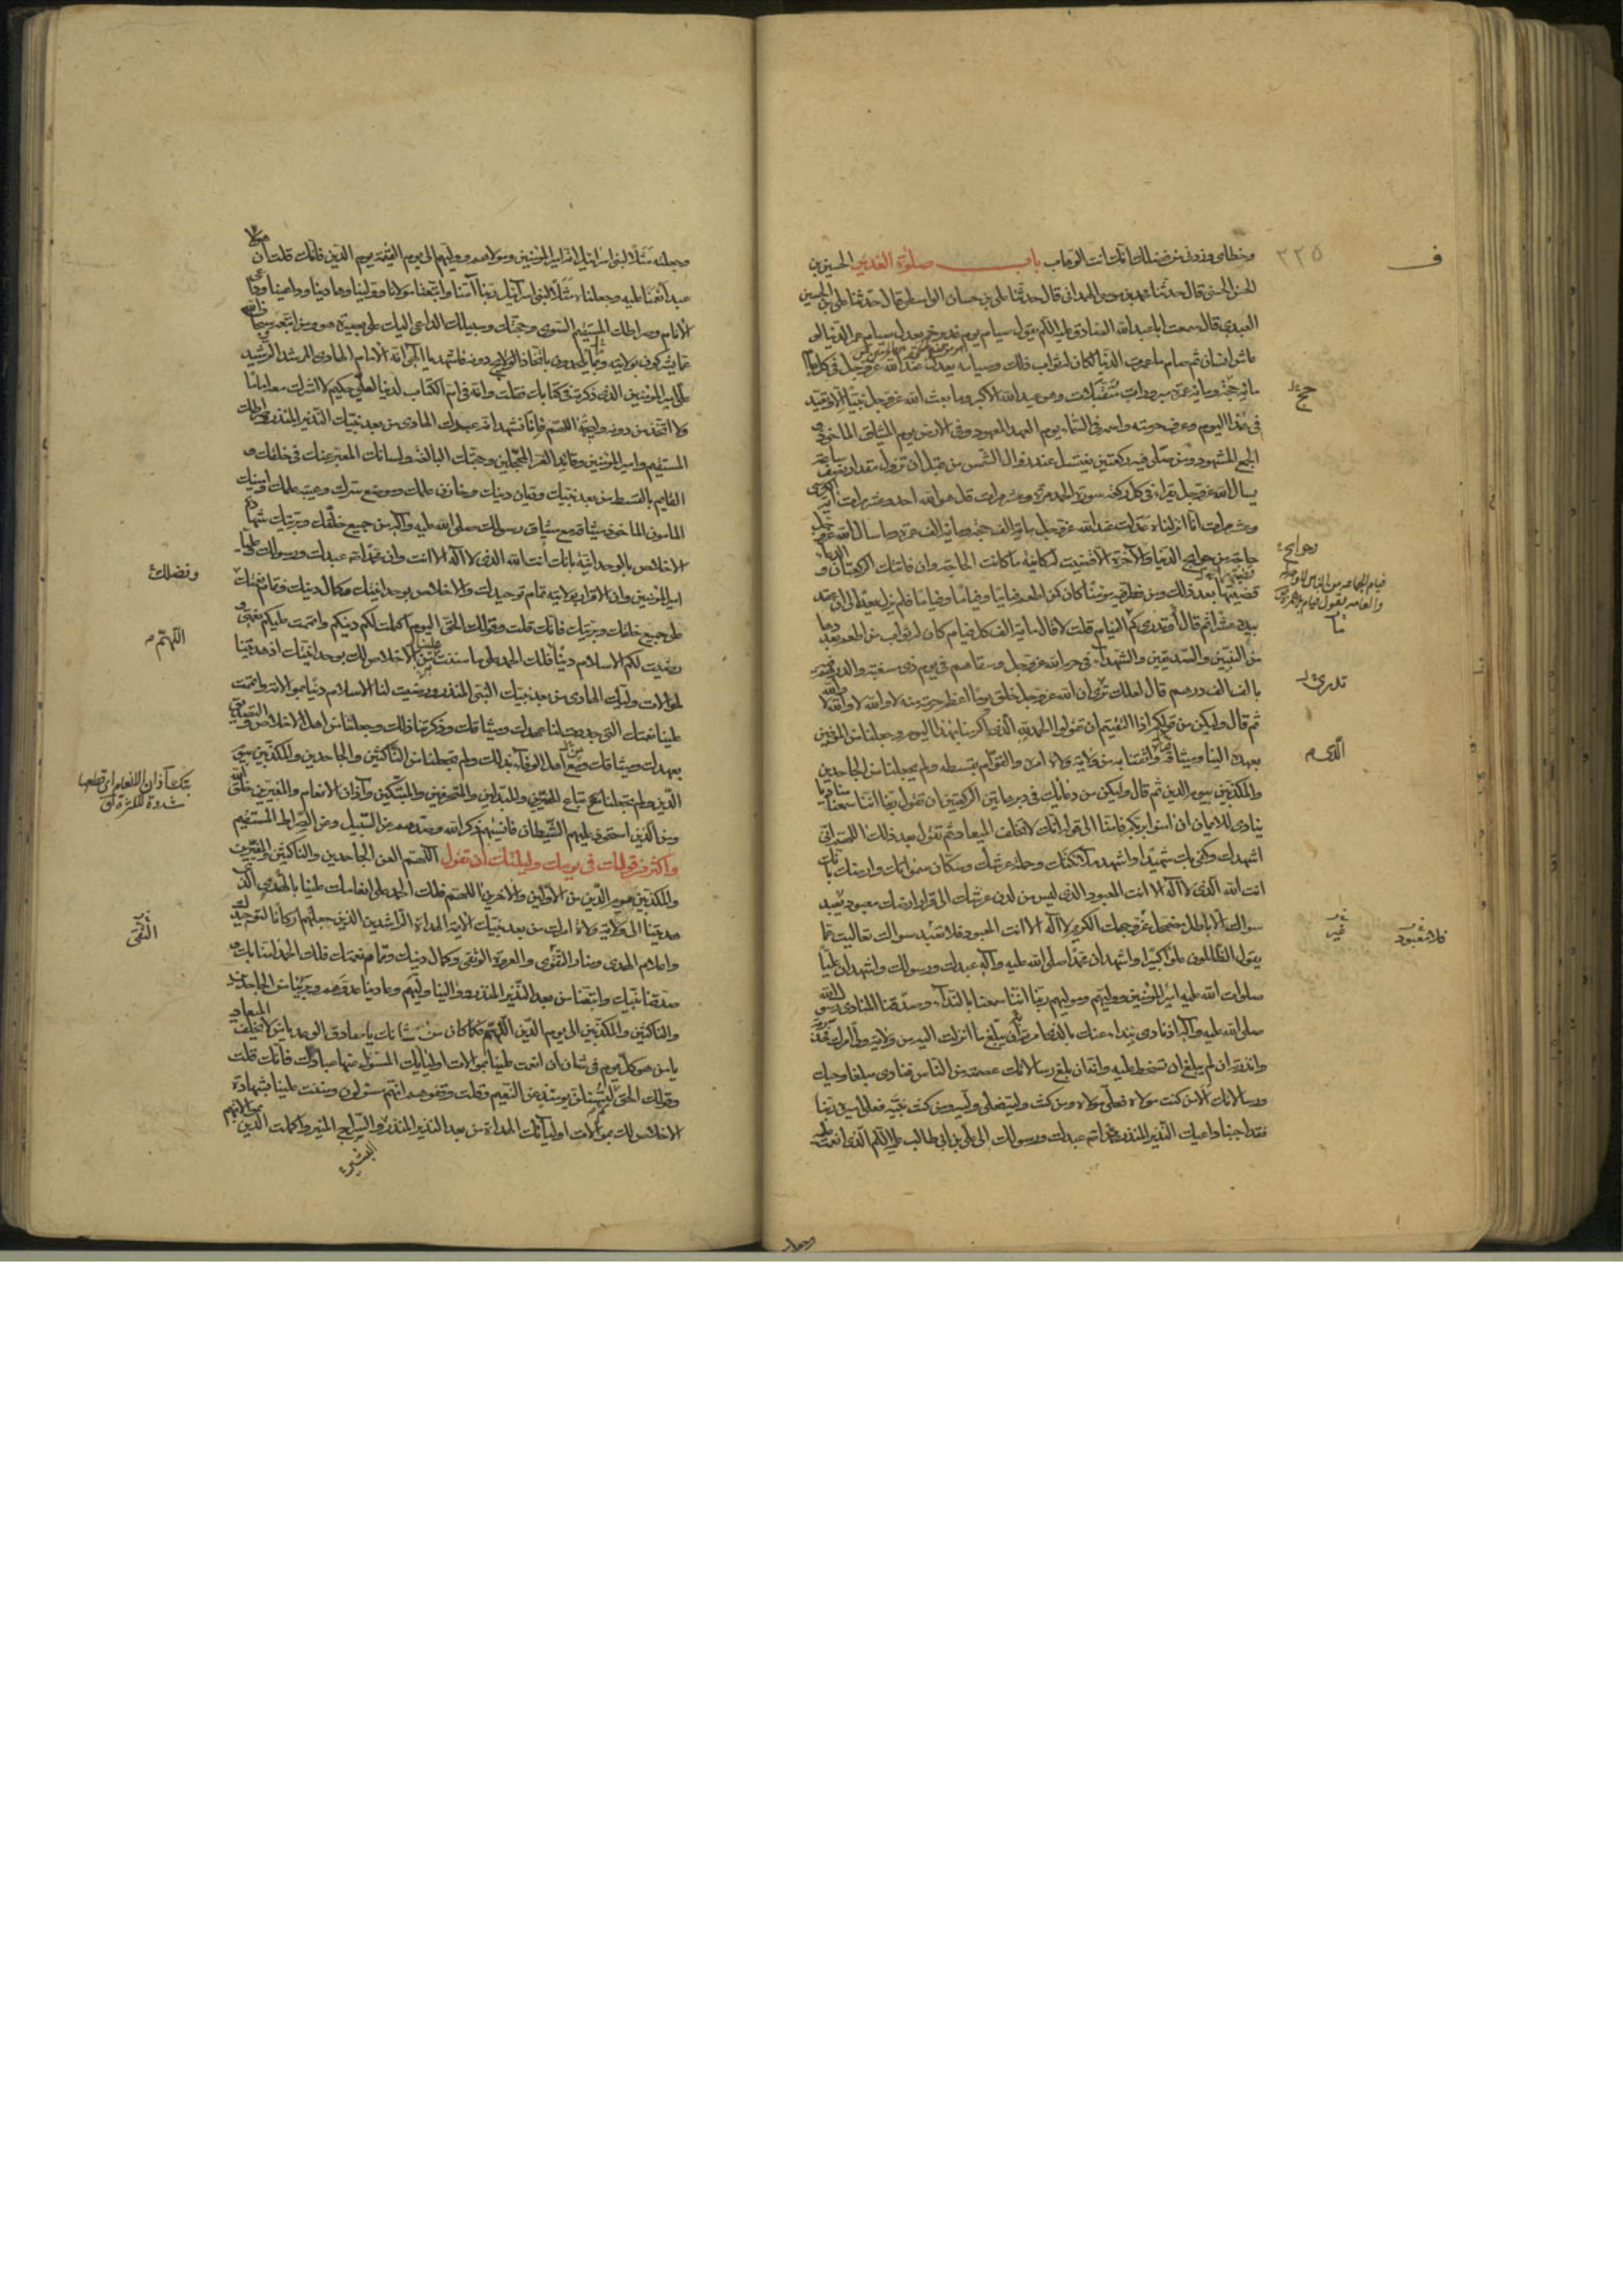 وخطاى وزدنى من فضلك انك انت الوهاب باب صلوة الغدير الحسين بن
الحسن الحسنى قال حدثنا محمد بن موسى الهمدانى قال حدثنا على بن حسان الواسطى قال حدثنا على بن الحسين
العبدى قال سمعت ابا عبد الله الصادق عليه السلم يقول صيام يوم غدير خم يعدل صيام عمر الدنيا لو
عاش انسان ثم صام ما عمرت الدنيا لكان له ثواب ذلك وصيامه يعدل عند الله عز وجل فى كل عام
مائة حجة ومائة عمرة مبرورات متقبلات وهو عيد الله الاكبر وما بعث الله عز وجل نبيا الا وتعيد
فى هذا اليوم وعرف حرمته واسمه فى السماء يوم العهد المعهود وفى الارض يوم الميثاق الماخوذ و
الجمع المشهود ومن صلى فيه ركعتين يغتسل عند زوال الشمس من قبل ان تزول مقدار نصف ساعة
يسال الله عز وجل يقرا فى كل ركعة سورة الحمد مرة وعشر مرات قل هو الله احد وعشر مرات اية الكرسى
وعشر مرات انا انزلناه عدلت عند الله عز وجل مائة الف حجة ومائة الف عمرة وما سال الله عز وجل
حاجة من حوايج الدنيا والآخرة الا قضيت له كائنة ما كانت الحاجة وان فاتتك الركعتان و
قضيتها بعد ذلك ومن فطر فيه مؤمنا كان كمن اطعم فئاما وفئاما وفئاما فلم يزل يعد الى ان عقد
بيده عشرا ثم قال أوتدرى كم الفئام قلت لا قال مائة الف كل فئام كان له ثواب من اطعم بعددها
من النبيين والصديقين والشهداء فى حرم الله عز وجل وسقاهم فى يوم ذى مسغبة والدرهم فيه
بالف الف درهم قال لعلك ترى ان الله عز وجل خلق يوما اعظم حرمة منه لا والله لا والله لا والله
ثم قال وليكن من قولكم اذا التقيتم ان تقولوا الحمد لله الذى اكرمنا بهذا اليوم وجعلنا من الموفين
بعهده الينا وميثاقه واثقنا به من ولاية ولاة امره والقوام بقسطه ولم يجعلنا من الجاحدين
والمكذبين بيوم الدين ثم قال وليكن من دعائك فى دبر هاتين الركعتين ان تقول ربنا اننا سمعنا مناديا
ينادى للايمان ان آمنوا بربكم فامنا الى قوله انك لا تخلف الميعاد ثم تقول بعد ذلك اللهم انى
اشهدك وكفى بك شهيدا واشهد ملائكتك وحملة عرشك وسكان سمواتك وارضك بانك
انت الله الذى لا اله الا انت المعبود الذى ليس من لدن عرشك الى قرار ارضك معبود يعبد
سواك الا باطل مضمحل غير وجهك الكريم لا اله الا انت المعبود فلا معبود سواك تعاليت عما
يقول الظالمون علوا كبيرا واشهد ان محمدا صلى الله عليه وآله عبدك ورسولك واشهد ان عليا
صلوات الله عليه امير المؤمنين ووليهم ومولاهم ربنا اننا سمعنا بالنداء وصدقنا المنادى رسول الله
صلى الله عليه وآله اذ نادى بنداء عنك بالذى امرته ان يبلغ ما انزلت اليه من ولاية ولى امرك
وانذرته ان لم يبلغ ان تسخط عليه وانه ان بلغ رسالاتك عصمته من الناس فنادى مبلغا وحيك
ورسالاتك الا من كنت مولاه فعلى مولاه ومن كنت وليه فعلى وليه ومن كنت نبيه فعلى اميره ربنا
فقد اجبنا داعيك النذير المنذر محمدا عبدك ورسولك الى على بن ابى طالب عليه السلم الذى انعمت عليه
ف
٢٢٥
حج
حوايج
فئام الجماعة من الناس
تدرى
الذى م
غير
فلا معبود
وجعلته مثلا لبنى اسرائيل انه امير المؤمنين ومولاهم ووليهم الى يوم القيمة يوم الدين فانك قلت ان هو الا
عبد انعمنا عليه وجعلناه مثلا لبنى اسرائيل ربنا آمنا واتبعنا مولانا وولينا وهادينا وداعينا وداعى
الانام وصراطك المستقيم السوى وحجتك وسبيلك الداعى اليك على بصيرة هو ومن اتبعه سبحان الله
عما يشركون بولايته وبما يلحدون باتخاذ الولايج دونه فاشهد يا الهى انه الامام الهادى المرشد الرشيد
على امير المؤمنين الذى ذكرته فى كتابك فقلت وانه فى ام الكتاب لدينا لعلى حكيم لا اشرك معه اماما
ولا اتخذ من دونه وليجة اللهم فانا نشهد انه عبدك الهادى من بعد نبيك النذير المنذر وصراطك
المستقيم وامير المؤمنين وقائد الغر المحجلين وحجتك البالغة ولسانك المعبر عنك فى خلقك و
القايم بالقسط من بعد نبيك وديان دينك وخازن علمك وموضع سرك وعيبة علمك وامينك
المامون الماخوذ ميثاقه مع ميثاق رسولك صلى الله عليه وآله من جميع خلقك وبريتك شهادة
الاخلاص بالوحدانية بانك انت الله الذى لا اله الا انت وان محمدا عبدك ورسولك وعليا
امير المؤمنين وان الاقرار بولايته تمام توحيدك والاخلاص بوحدانيتك وكمال دينك وتمام نعمتك
على جميع خلقك وبريتك فانك قلت وقولك الحق اليوم اكملت لكم دينكم واتممت عليكم نعمتى و
رضيت لكم الاسلام دينا فلك الحمد على ما مننت به علينا من الاخلاص لك بوحدانيتك اذ هديتنا
لموالاة وليك الهادى من بعد نبيك النبى المنذر ورضيت لنا الاسلام دينا بموالاته واتممت
علينا نعمتك التى جددت لنا عهدك وميثاقك وذكرتنا ذلك وجعلتنا من اهل الاخلاص والتصديق
بعهدك وميثاقك ومن اهل الوفاء بذلك ولم تجعلنا من الناكثين والجاحدين والمكذبين بيوم
الدين ولم تجعلنا من اتباع المغيرين والمبدلين والمحرفين والمبتكين آذان الانعام والمغيرين خلق الله
ومن الذين استحوذ عليهم الشيطان فانسيهم ذكر الله وصدهم عن السبيل وعن الصراط المستقيم
واكثر من قولك فى يومك وليلتك ان تقول اللهم العن الجاحدين والناكثين والمغيرين
والمكذبين بيوم الدين من الاولين والآخرين اللهم فلك الحمد على انعامك علينا بالهدى الذى
هديتنا الى ولاية ولاة امرك من بعد نبيك الائمة الهداة الراشدين الذين جعلتهم اركانا لتوحيدك
واعلام الهدى ومنار التقوى والعروة الوثقى وكمال دينك وتمام نعمتك فلك الحمد آمنا بك و
صدقنا نبيك واتبعنا من بعده النذير المنذر ووالينا وليهم وعادينا عدوهم وبرئنا من الجاحدين
والناكثين والمكذبين الى يوم الدين اللهم فكما كان من شانك يا صادق الوعد يا من لا يخلف الميعاد
يا من هو كل يوم فى شان ان انعمت علينا بموالاة اوليائك المسئول عنها عبادك فانك قلت
وقولك الحق لتسئلن يومئذ عن النعيم وقلت وقفوهم انهم مسئولون ومننت علينا بشهادة
الاخلاص لك بموالاة اوليائك الهداة من بعد النذير المنذر والسراج المنير واكملت الدين بموالاتهم
وفضلك
اللهم م
بتك آذان الانعام اى قطعها
شدد للكثرة ق
التقى
البشير